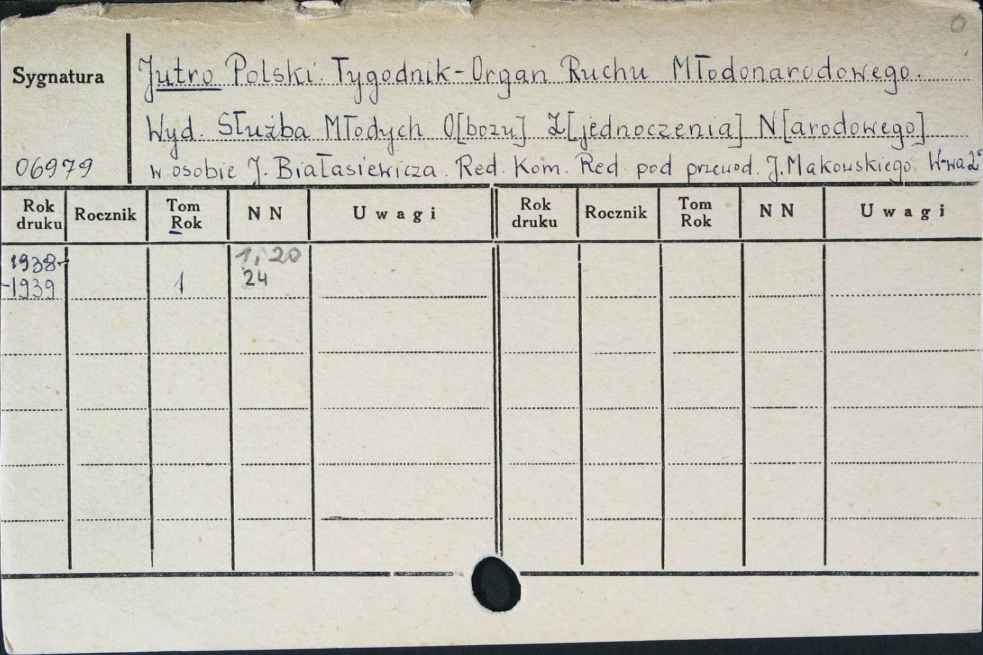 0
Sygnatura
Jutro Polski. Tygodnik-Organ Ruchu Młodonarodowego.
Wyd. Służba Młodych O[bozu] Z[jednoczenia] N[arodowego]
06979
w osobie J. Białasiewicza. Red. Kom. Red pod przewod. J. Makowskiego. W-wa
Rok druku Rocznik Tom Rok NN Uwagi Rok druku Rocznik Tom Rok NN Uwagi
1938- 1, 20
-1939 1 24